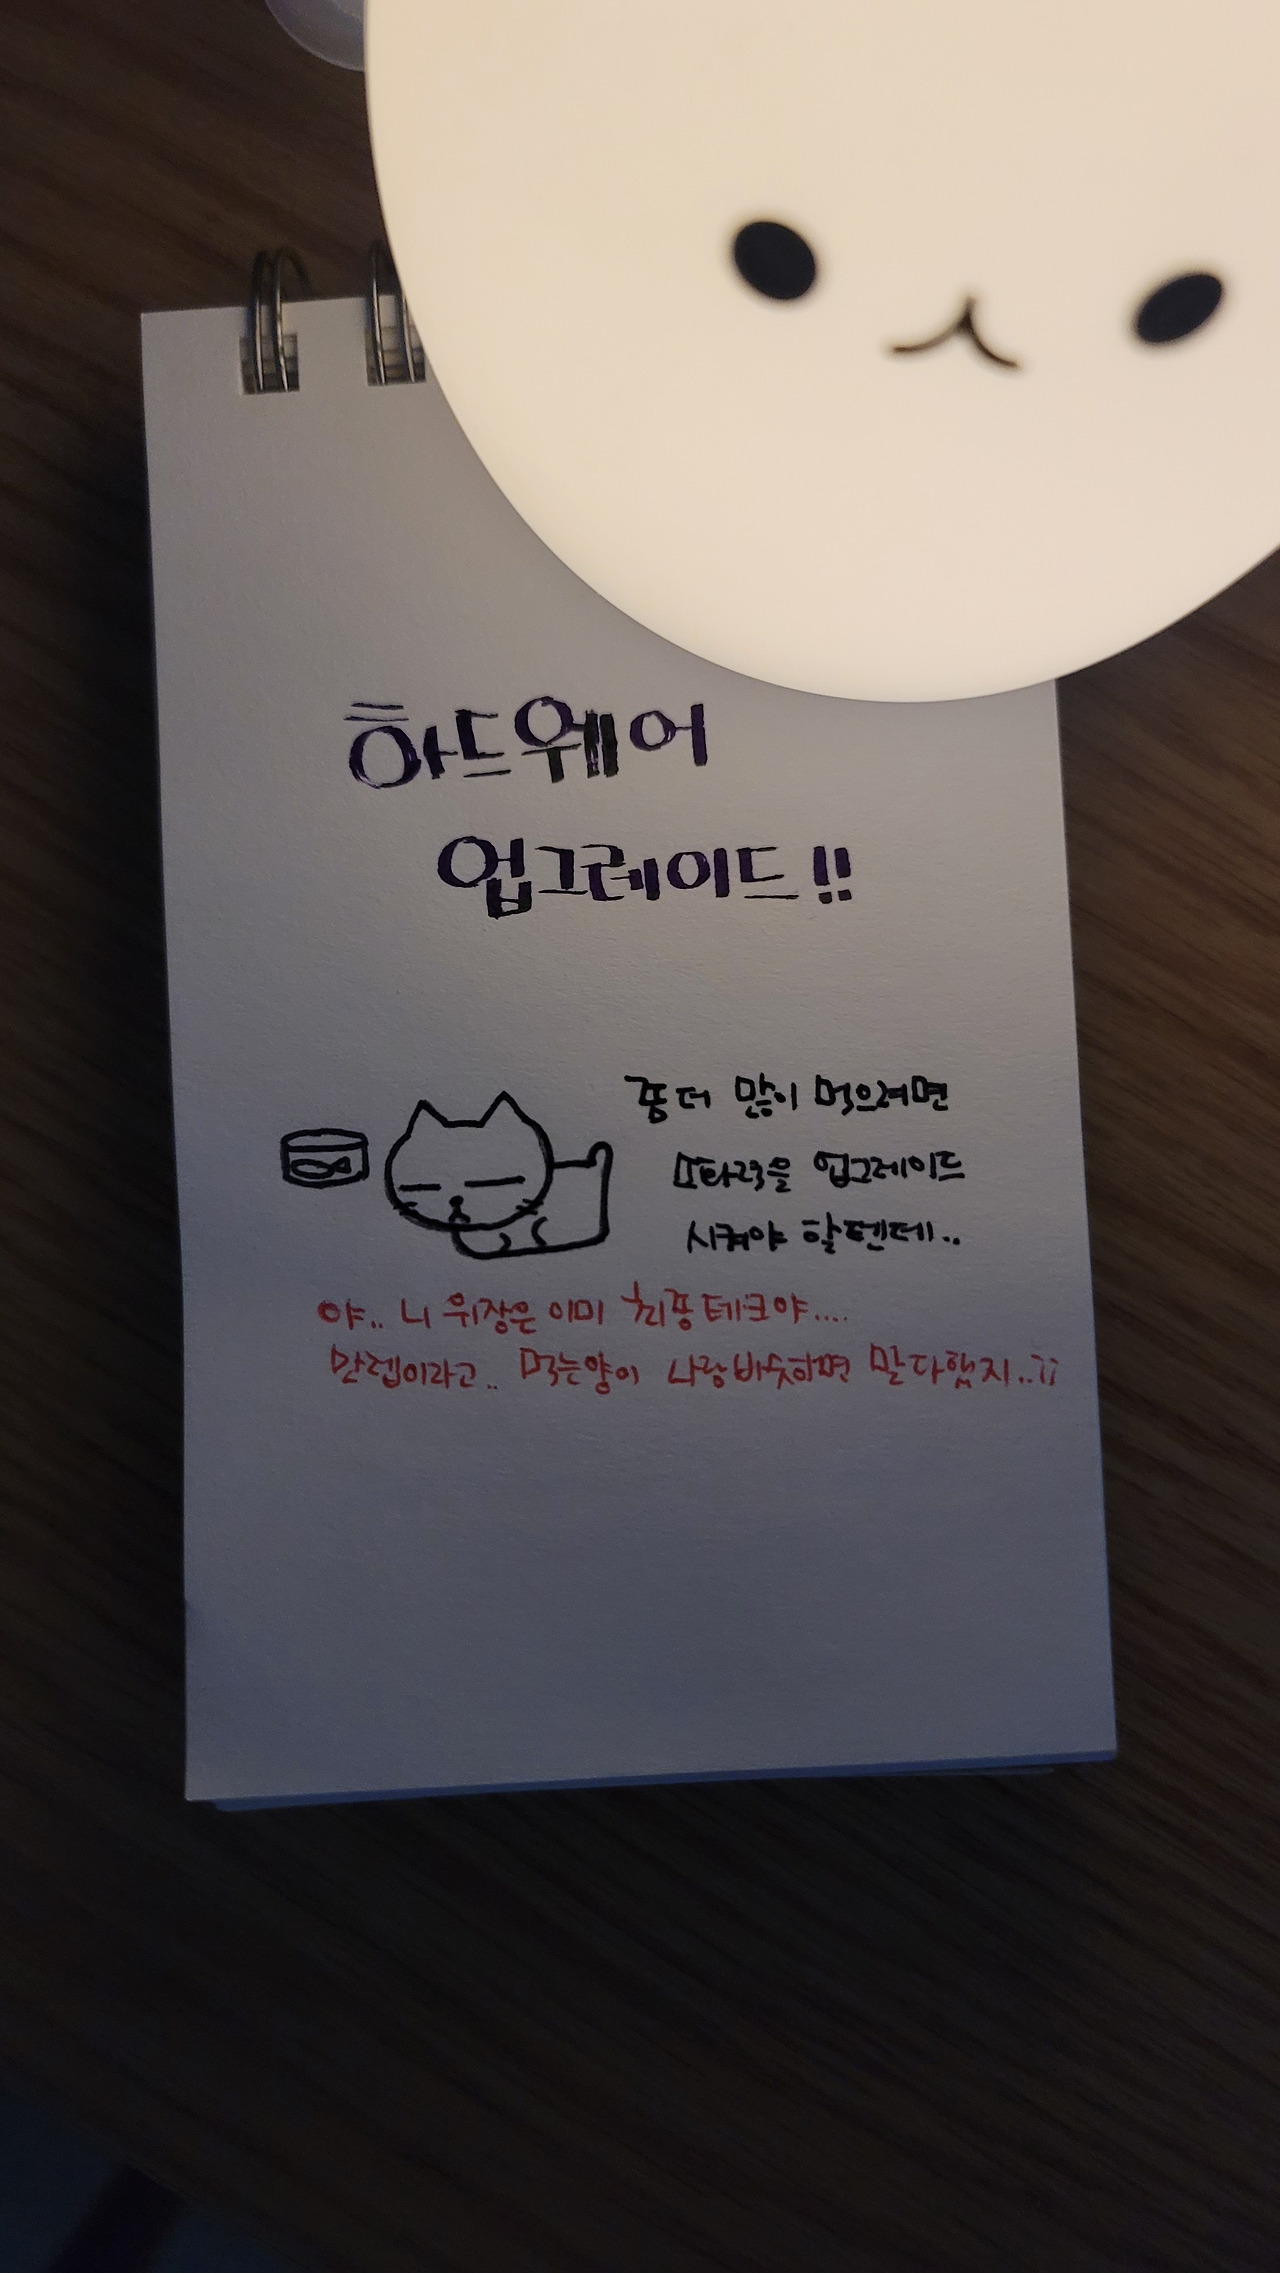 하드웨어
업그레이드!!
더 많이 먹으려면
업그레이드
시켜야 할텐데..
야.. 니 위장은 이미 하이테크야....
만렙이라고.. 먹는양이 나랑 비슷하면 말 다했지..;;